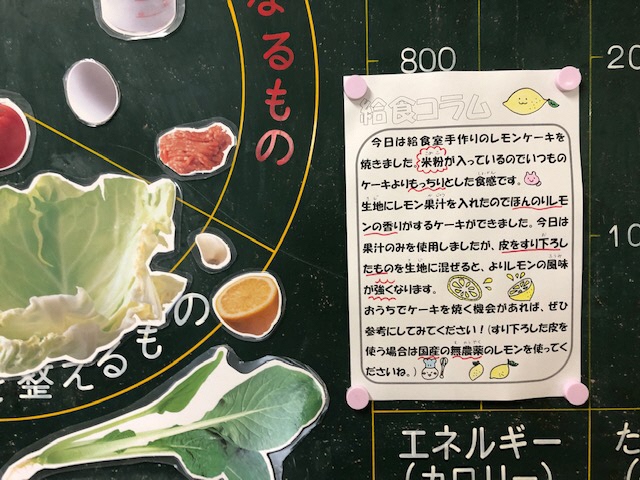 なるもの
800
20
給食コラム
今日は給食室手作りのレモンケーキを
焼きました。米粉が入っているのでいつもの
ケーキよりもっちりとした食感です。
生地にレモン果汁を入れたのでほんのりレモ
ンの香りがするケーキができました。今日は
果汁のみを使用しましたが、皮をすり下ろし
たものを生地に混ぜると、よりレモンの風味
が強くなります。
おうちでケーキを焼く機会があれば、ぜひ
参考にしてみてください！(すり下ろした皮を
使う場合は国産の無農薬のレモンを使ってく
ださいね。)
10
整えるもの
エネルギー
(カロリー)
た